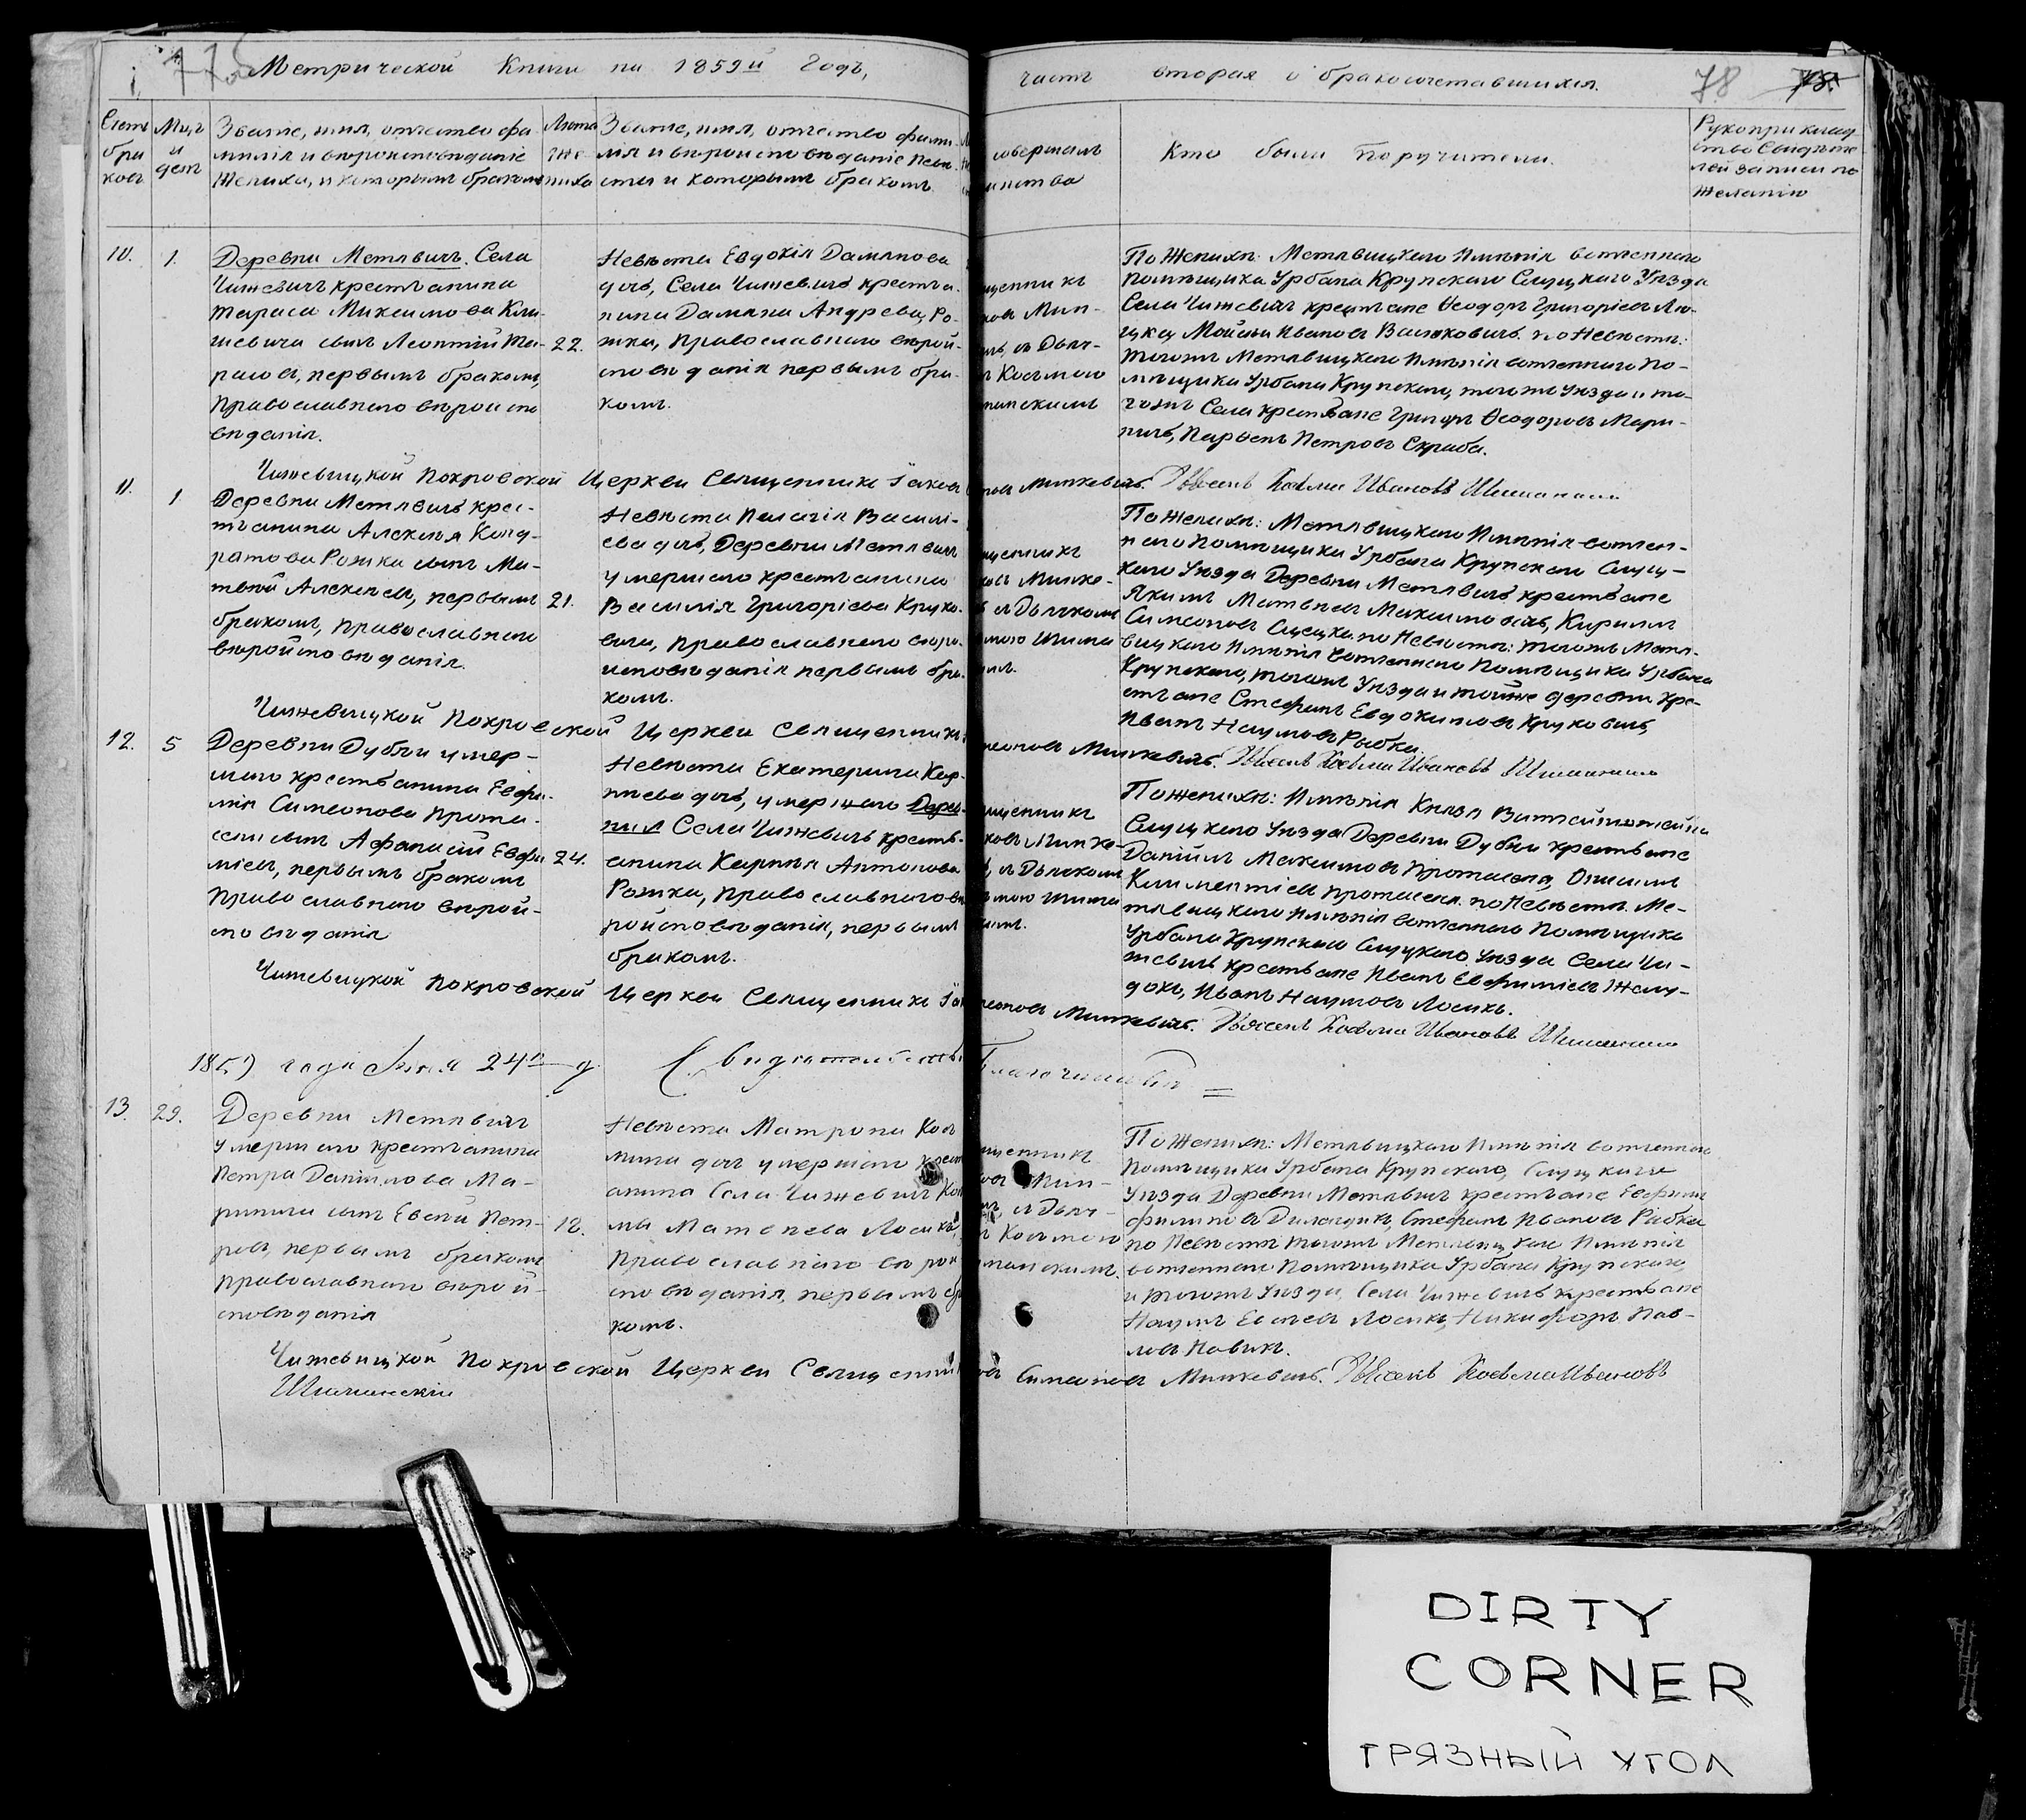 Метрической Книги на 1859й Годъ,
часть вторая о бракосочетавшихся.
78
Счетъ браковъ
Мцъ и день
Званіе, имя, отчество фа-
милія и вѣроисповѣданіе
Жениха, и которымъ бракомъ
Лѣта Же-
ниха
Званіе, имя, отчество фами-
лія и вѣроисповѣданіе Невѣ-
сты и которымъ бракомъ
совершалъ
инство
Кто были Поручители.
Рукоприклад-
ство Свидѣте
лей записи по
желанію
10.
1.
Деревни Метявичъ. Села
Чижевичъ крестьянина
Тараса Максимова Кли-
шевича сынъ Леонтій Та-
расовъ, первымъ бракомъ,
Православнаго вѣроиспо
вѣданія.
22.
Невѣста Евдокія Дамянова
дочь, Села Чижевичъ крестья-
нина Дамяна Андреева Ро-
жка, Православнаго вѣрои-
сповѣданія первымъ бра-
комъ.
щенникъ
ковъ Мин-
ичъ, съ Дьяч-
ъ Косьмою
манскимъ
По Женихѣ: Метявицкаго Имѣнія вотченнаго
Помѣщика Урбана Крупскаго Слуцкаго Уѣзда
Села Чижевичъ крестьяне Ѳеодоръ Григоріевъ
Мойсей Ивановъ Васюковичъ. по Невѣстѣ:
тогожъ Метявицкаго Имѣнія вотченнаго По-
мѣщика Урбана Крупскаго, тогожъ Уѣзда и то-
гожъ Села крестьяне Григоръ Ѳеодоровъ Мари-
ничъ, Парѳенъ Петровъ Скраба.
Чижевицкой Покровской Церкви Священникъ Іаковъ
Минкевичъ. Дьячекъ Косьма Ивановъ Шиманскій
11.
1
Деревни Метявичъ крес-
тьянина Алексѣя Конд-
ратова Рожка сынъ Ма-
твѣй Алексѣевъ, первымъ
бракомъ, Православнаго
вѣроисповѣданія.
21.
Невѣста Пелагія Василі-
ева дочь, Деревни Метявичъ
умершаго крестьянина
Василія Григоріева Круко-
вича, Православнаго вѣро-
исповѣданія первымъ бра-
комъ.
щенникъ
ковъ Минке-
ъ съ Дьячкомъ
мою Шима
имъ.
По Женихѣ: Метявицкаго Имѣнія вотчен-
наго Помѣщика Урбана Крупскаго Слуц-
каго Уѣзда Деревни Метявичъ крестьяне
Якимъ Матвѣевъ Максимовичъ, Кириллъ
Симеоновъ по Невѣстѣ: тогожъ Метя-
вицкаго Имѣнія вотченнаго Помѣщика Урбана
Крупскаго, тогожъ Уѣзда и тойже деревни кре-
стьяне Стефанъ Евдокимовъ Круковичъ,
Иванъ Наумовъ Рыбка.
Чижевицкой Покровской Церкви Священникъ
меоновъ Минкевичъ. Дьячекъ Косьма Ивановъ Шиманскій
12.
5
Деревни Дубеи умер-
шаго крестьянина Евфи-
мія Симеонова Прота-
сени сынъ Афанасій Евфи
міевъ, первымъ бракомъ
Православнаго вѣрои-
сповѣданія
24.
Невѣста Екатерина Кар-
пѣева дочь, умершаго Дерев-
ния Села Чижевичъ кресть-
янина Карпѣя Антонова
Рожка, Православнаго вѣ
роисповѣданія, первымъ
бракомъ.
щенникъ
ковъ Минке-
ъ, съ Дьячкомъ
мою Шима
имъ.
По Женихѣ: Имѣнія Князя Витгенштейна
Слуцкаго Уѣзда Деревни Дубеи крестьяне
Даніилъ Максимовъ Протасеня, Онисимъ
Климентіевъ Протасеня. по Невѣстѣ. Ме-
тявицкаго Имѣнія вотченнаго Помѣщика
Урбана Крупскаго Слуцкаго Уѣзда Села Чи-
жевичъ крестьяне Иванъ Евфиміевъ Желу-
докъ, Иванъ Наумовъ Лосикъ.
Чижевицкой Покровской Церкви Священникъ
меоновъ Минкевичъ. Дьячекъ Косьма Ивановъ Шиманскій
1859 года 24 д
Благочинный
13.
29.
Деревни Метявичъ
умершаго крестьянина
Петра Даніилова Ма-
ринича сынъ Евсей Пет-
ровъ, первымъ бракомъ
Православнаго вѣрои-
сповѣданія
18.
Невѣста Матрона Кось
мина дочь умершаго крест
янина Села Чижевичъ Кось
мы Матвѣева Лосика,
Православнаго вѣрои
сповѣданія, первымъ бра
комъ.
щенникъ
ковъ Мин-
ичъ, съ Дьяч-
ъ Косьмою
манскимъ.
По Женихѣ: Метявицкаго Имѣнія вотченнаго
Помѣщика Урбана Крупскаго, Слуцкаго
Уѣзда Деревни Метявичъ крестьяне Евфимъ
Филиповъ Стефанъ Ивановъ Рыбка
по Невѣстѣ тогожъ Метявицкаго Имѣнія
вотченнаго Помѣщика Урбана Крупскаго,
и тогожъ Уѣзда, Села Чижевичъ крестьяне
Наумъ Лосикъ, Никифоръ Пав-
ловъ Новикъ.
Чижевицкой Покровской Церкви Священникъ
Симеоновъ Минкевичъ. Дьячекъ Косьма Ивановъ
Шиманскій
DIRTY
CORNER
ГРЯЗНЫЙ УГОЛ